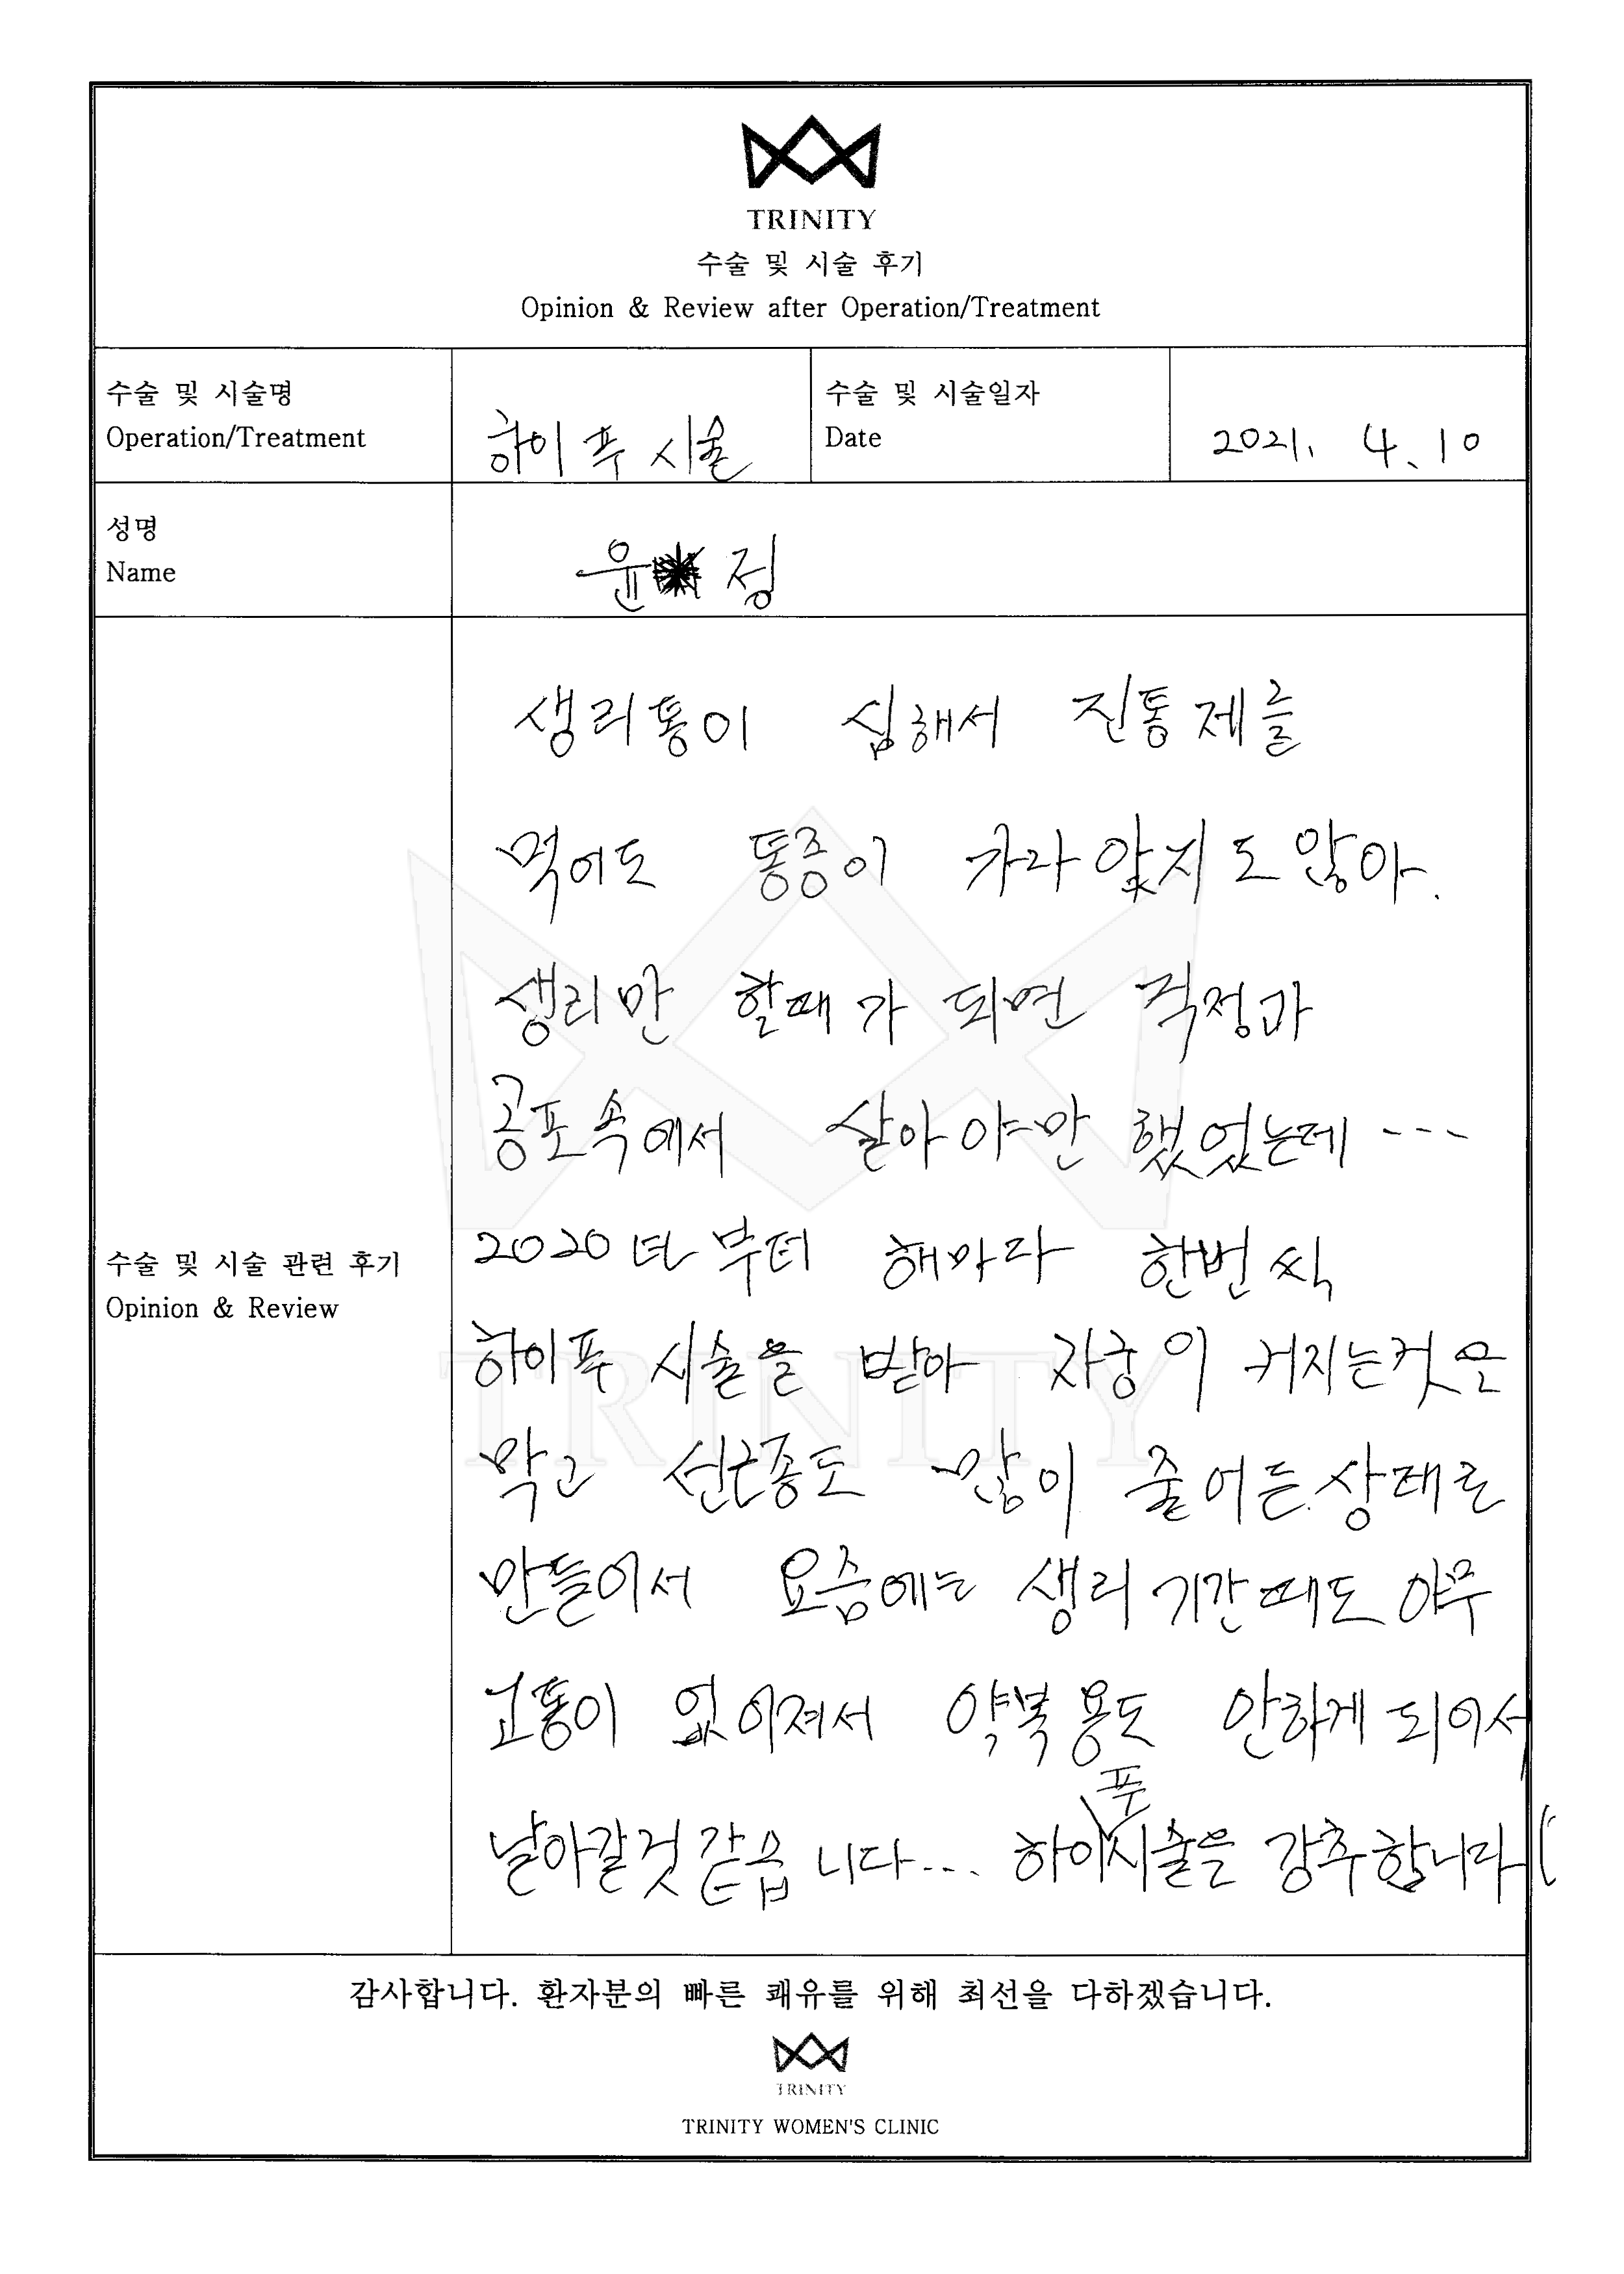 TRINITY
수술 및 시술 후기
Opinion & Review after Operation/Treatment
수술 및 시술명
Operation/Treatment
하이푸 시술
수술 및 시술일자
Date
2021. 4. 10
성명
Name
윤 정
수술 및 시술 관련 후기
Opinion & Review
생리통이 심해서 진통제를
먹어도 통증이 가라앉지도 않아.
생리만 할때가 되면 걱정과
공포속에서 살아야만 했었는데 ---
2020년부터 해마다 한번씩
하이푸 시술을 받아 자궁이 커지는것은
막고 선근종도 많이 줄어든 상태로
만들어서 요즘에는 생리 기간때도 아무
고통이 없어져서 약복용도 안하게 되어서
날아갈것 같습니다... 하이푸시술을 강추합니다!
TRINITY
감사합니다. 환자분의 빠른 쾌유를 위해 최선을 다하겠습니다.
TRINITY
TRINITY WOMEN'S CLINIC